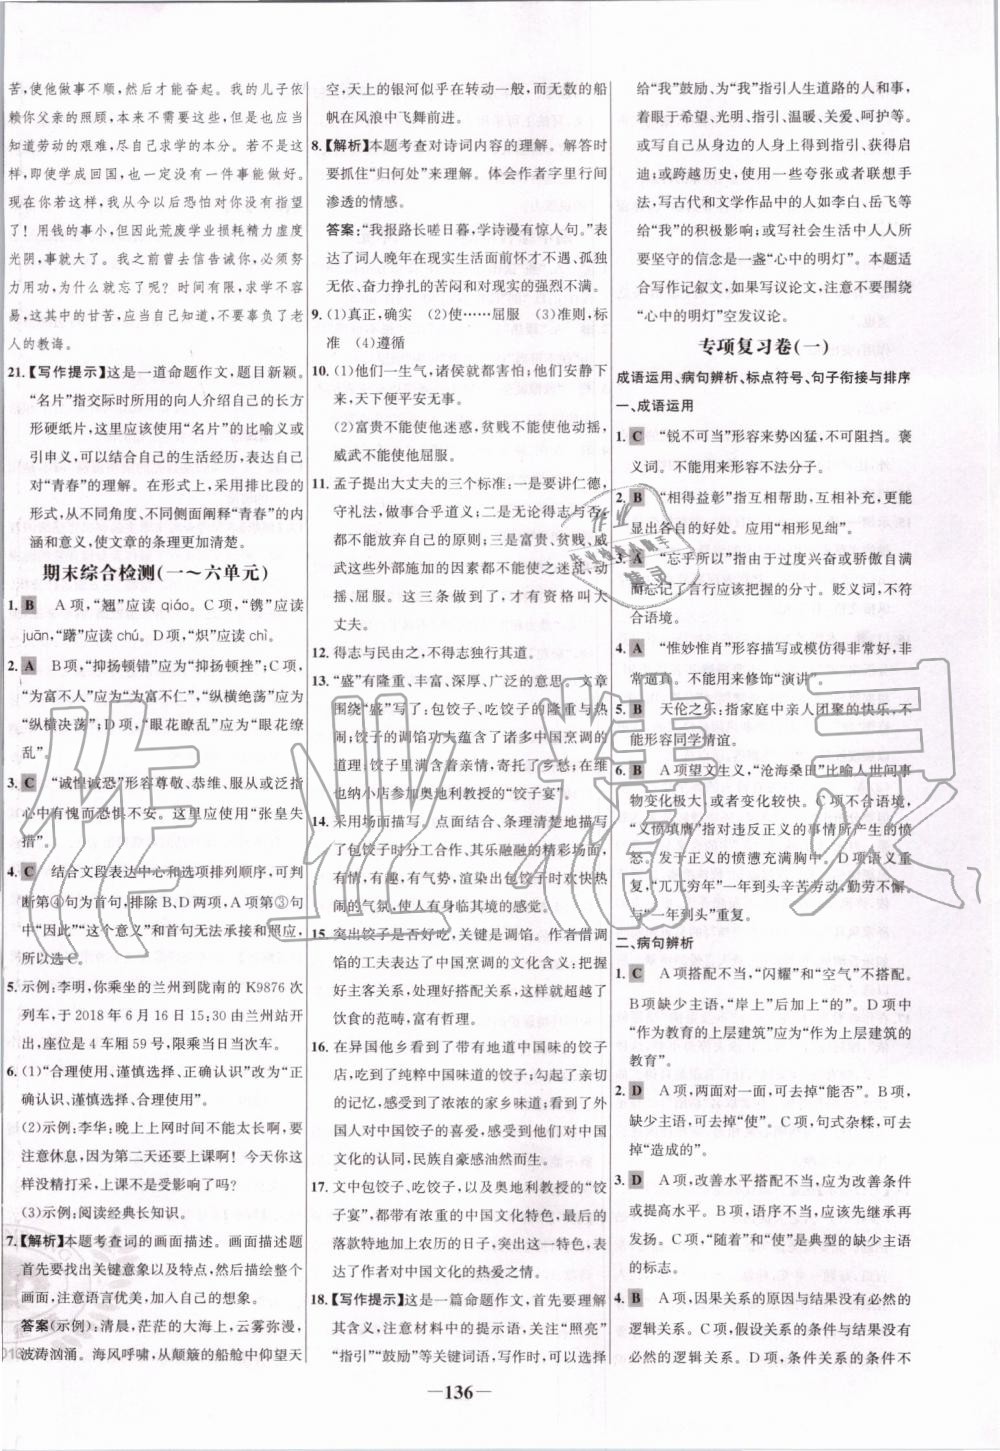 苦,使他做事不顺,然后才能奋起。我的儿子依
赖你父亲的照顾,本来不算困苦,但是也应当
知道劳动的艰难,尽自己求学的本分。若不是这
样,即使学成回国,也一定没有一件事能做好。
现在你若是这样,我从今以后恐怕对你没有指望
了!用钱的事小,但荒废学业损耗精力虚度
光阴,事就大了。我之前曾去信告诫你,必须努
力用功,为什么就忘了呢?时间有限,求学不容
易,这其中的甘苦,应当自己知道,不要辜负了老
人的教诲。
21.【写作提示】这是一道命题作文,题目新颖。
“名片”指交际时所用的向人介绍自己的长方
形硬纸片,这里应该使用“名片”的比喻义或
引申义,可以结合自己的生活经历,表达自己
对“青春”的理解。在形式上,采用排列段落的
形式,从不同角度、不同侧面阐释“青春”的内
涵和意义,使文章的条理更加清楚。
期末综合检测(一～六单元)
1. B A项,“翘”应读 qiáo。C项,“镌”应读
juān,“曙”应读 chú。D项,“炽”应读 chì。
2. A B项,“抑扬顿错”应为“抑扬顿挫”;C项,
“为富不人”应为“为富不仁”,“纵横绝荡”应为
“纵横决荡”;D项,“眼花瞭乱”应为“眼花缭
乱”。
3. C “诚惶诚恐”形容尊敬、恭维、服从或泛指
心中有愧而恐惧不安。这里应使用“张皇失
措”。
4. C 结合文段表达中心和选项排列顺序,可判
断第④句为首句,排除B、D两项,A项第③句
中“因此”“这个意义”和首句无法承接和照应,
所以选C。
5. 示例:李明,你乘坐的兰州到陇南的K9876次
列车,于2018年6月16日15:30由兰州站开
出,座位是4车厢59号,限乘当日当次车。
6. (1)“合理使用、谨慎选择、正确认识”改为“正
确认识、谨慎选择、合理使用”。
(2)示例:李华:晚上上网时间不能太长啊,要
注意休息,因为第二天还要上课啊!今天你这
样没精打采,上课不是受影响了吗?
(3)示例:阅读经典长知识。
7.【解析】本题考查词的画面描述。画面描述题
首先要找出关键意象以及特点,然后描绘整个
画面,注意语言优美,加入自己的想象。
答案(示例):清晨,茫茫的大海上,云雾弥漫,
波涛汹涌。海风呼啸,从颠簸的船舱中仰望天
空,天上的银河似乎在转动一般,而无数的船
帆在风浪中飞舞前进。
8.【解析】本题考查对诗词内容的理解。解答时
要抓住“归何处”来理解。体会作者字里行间
渗透的情感。
答案:“我报路长嗟日暮,学诗谩有惊人句。”表
达了词人晚年在现实生活面前怀才不遇、孤独
无依、奋力挣扎的苦闷和对现实的强烈不满。
9. (1)真正,确实 (2)使……屈服 (3)准则,标
准 (4)遵循
10. (1)他们一生气,诸侯就都害怕;他们安静下
来,天下便平安无事。
(2)富贵不能使他迷惑,贫贱不能使他动摇,
威武不能使他屈服。
11. 孟子提出大丈夫的三个标准:一是要讲仁德,
守礼法,做事合乎道义;二是无论得志与否,
都不能放弃自己的原则;三是富贵、贫贱、威
武这些外部施加的因素都不能让其迷惑、动
摇、屈服。这三条完成了,才有资格叫大
丈夫。
12. 得志与民由之,不得志独行其道。
13. “盛”有隆重、丰富、深厚、广泛的意思。文章
围绕“盛”写了:包饺子、吃饺子的隆重与热
闹;饺子的调馅功夫大蕴含了中国烹调的讲
究;包饺子、吃饺子寄托了中华亲情;写了维
也纳小店参加奥地利教授的“饺子宴”。
14. 采用场面描写,点面结合、条理清楚地描写了
包饺子时分工合作、其乐融融的精彩场面,
有情,有趣,有气势,渲染出包饺子时欢快热
闹的气氛,使人有身临其境的感觉。
15. 突出饺子是否好吃,关键是调馅。作者借调
馅的工夫表达了中国烹调的文化含义:把握
好主客关系,处理好搭配关系,这就超越了
饮食的范畴,富有哲理。
16. 在异国他乡看到了带有地道中国味的饺子
店,吃到了纯粹中国味道的饺子;勾起了亲切
的记忆,感受到了浓浓的家乡味道;看到了外
国人对中国饺子的喜爱,感受到了他们对中国
文化的认同,民族自豪感油然而生。
17. 文中包饺子、吃饺子,以及奥地利教授的“饺
子宴”,都带有浓重的中国文化特色,最后的
落款特地加上农历的日子,突出这一文化特
色,表达对中国文化的热爱之情。
18.【写作提示】这是一篇命题作文,首先要理解
其含义,注意材料中的提示语,关注“照亮”
“指引”“鼓励”等关键词语,写作时,可以选择
给“我”鼓励、为“我”指引人生道路的人和事,
着眼于希望、光明、指引、温暖、关爱、呵护等。
可以写自己身边的人和事,从中获得
启迪;或跨越历史,使用一些夸张或者联想手
法,写古代和文学作品中的人如李白、岳飞等
给“我”的积极影响;或写社会生活中人人所
要坚守的信念是一盏“心中的明灯”。本题适
合写作记叙文,如果写议论文,注意不要围绕
“心中的明灯”空发议论。
专项复习卷(一)
成语运用、病句辨析、标点符号、句子衔接与排序
一、成语运用
1. C “锐不可当”形容来势凶猛,不可阻挡。褒
义词。不能用来形容不法分子。
2. B “相得益彰”指互相配合,互相补充,更能
显出各自的好处。应用“相形见绌”。
3. A “忘乎所以”指由于过度兴奋或骄傲自满
而忘记了言行应该把握的分寸。贬义词,不符
合语境。
4. A “惟妙惟肖”形容描写或模仿得非常好,非
常逼真。不能用来修饰“演讲”。
5. B 天伦之乐:指家庭中亲人团聚的快乐,不
能形容同学情谊。
6. B A项望文生义,“沧海桑田”比喻人世间事
物变化极大,或者变化较快。C项不合语境,
“义愤填膺”指对违反正义的事情所产生的愤
怒。发于正义的愤懑充满胸中。D项语义重
复,“兀兀穷年”一年到头辛苦劳动,勤劳不懈。
与“一年到头”重复。
二、病句辨析
1. C A项搭配不当,“闪耀”和“空气”不搭配。
B项缺少主语,“岸上”后加上“的”。D项中
“作为教育的上层建筑”应为“作为上层建筑的
教育”。
2. D A项,两面对一面,可去掉“能否”。B项,
缺少主语,可去掉“使”。C项,句式杂糅,可去
掉“造成的”。
3. D A项,改善水平搭配不当,应为改善条件
或提高水平。B项,语序不当,应该先继承再发
展。C项,“随着”和“使”是典型的缺少主语
的标志。
4. B A项,因果关系的原因与结果没有必然的
逻辑关系。C项,假设关系的条件与结果没有
必然的逻辑关系。D项,条件关系的条件不
—136—
作业精灵